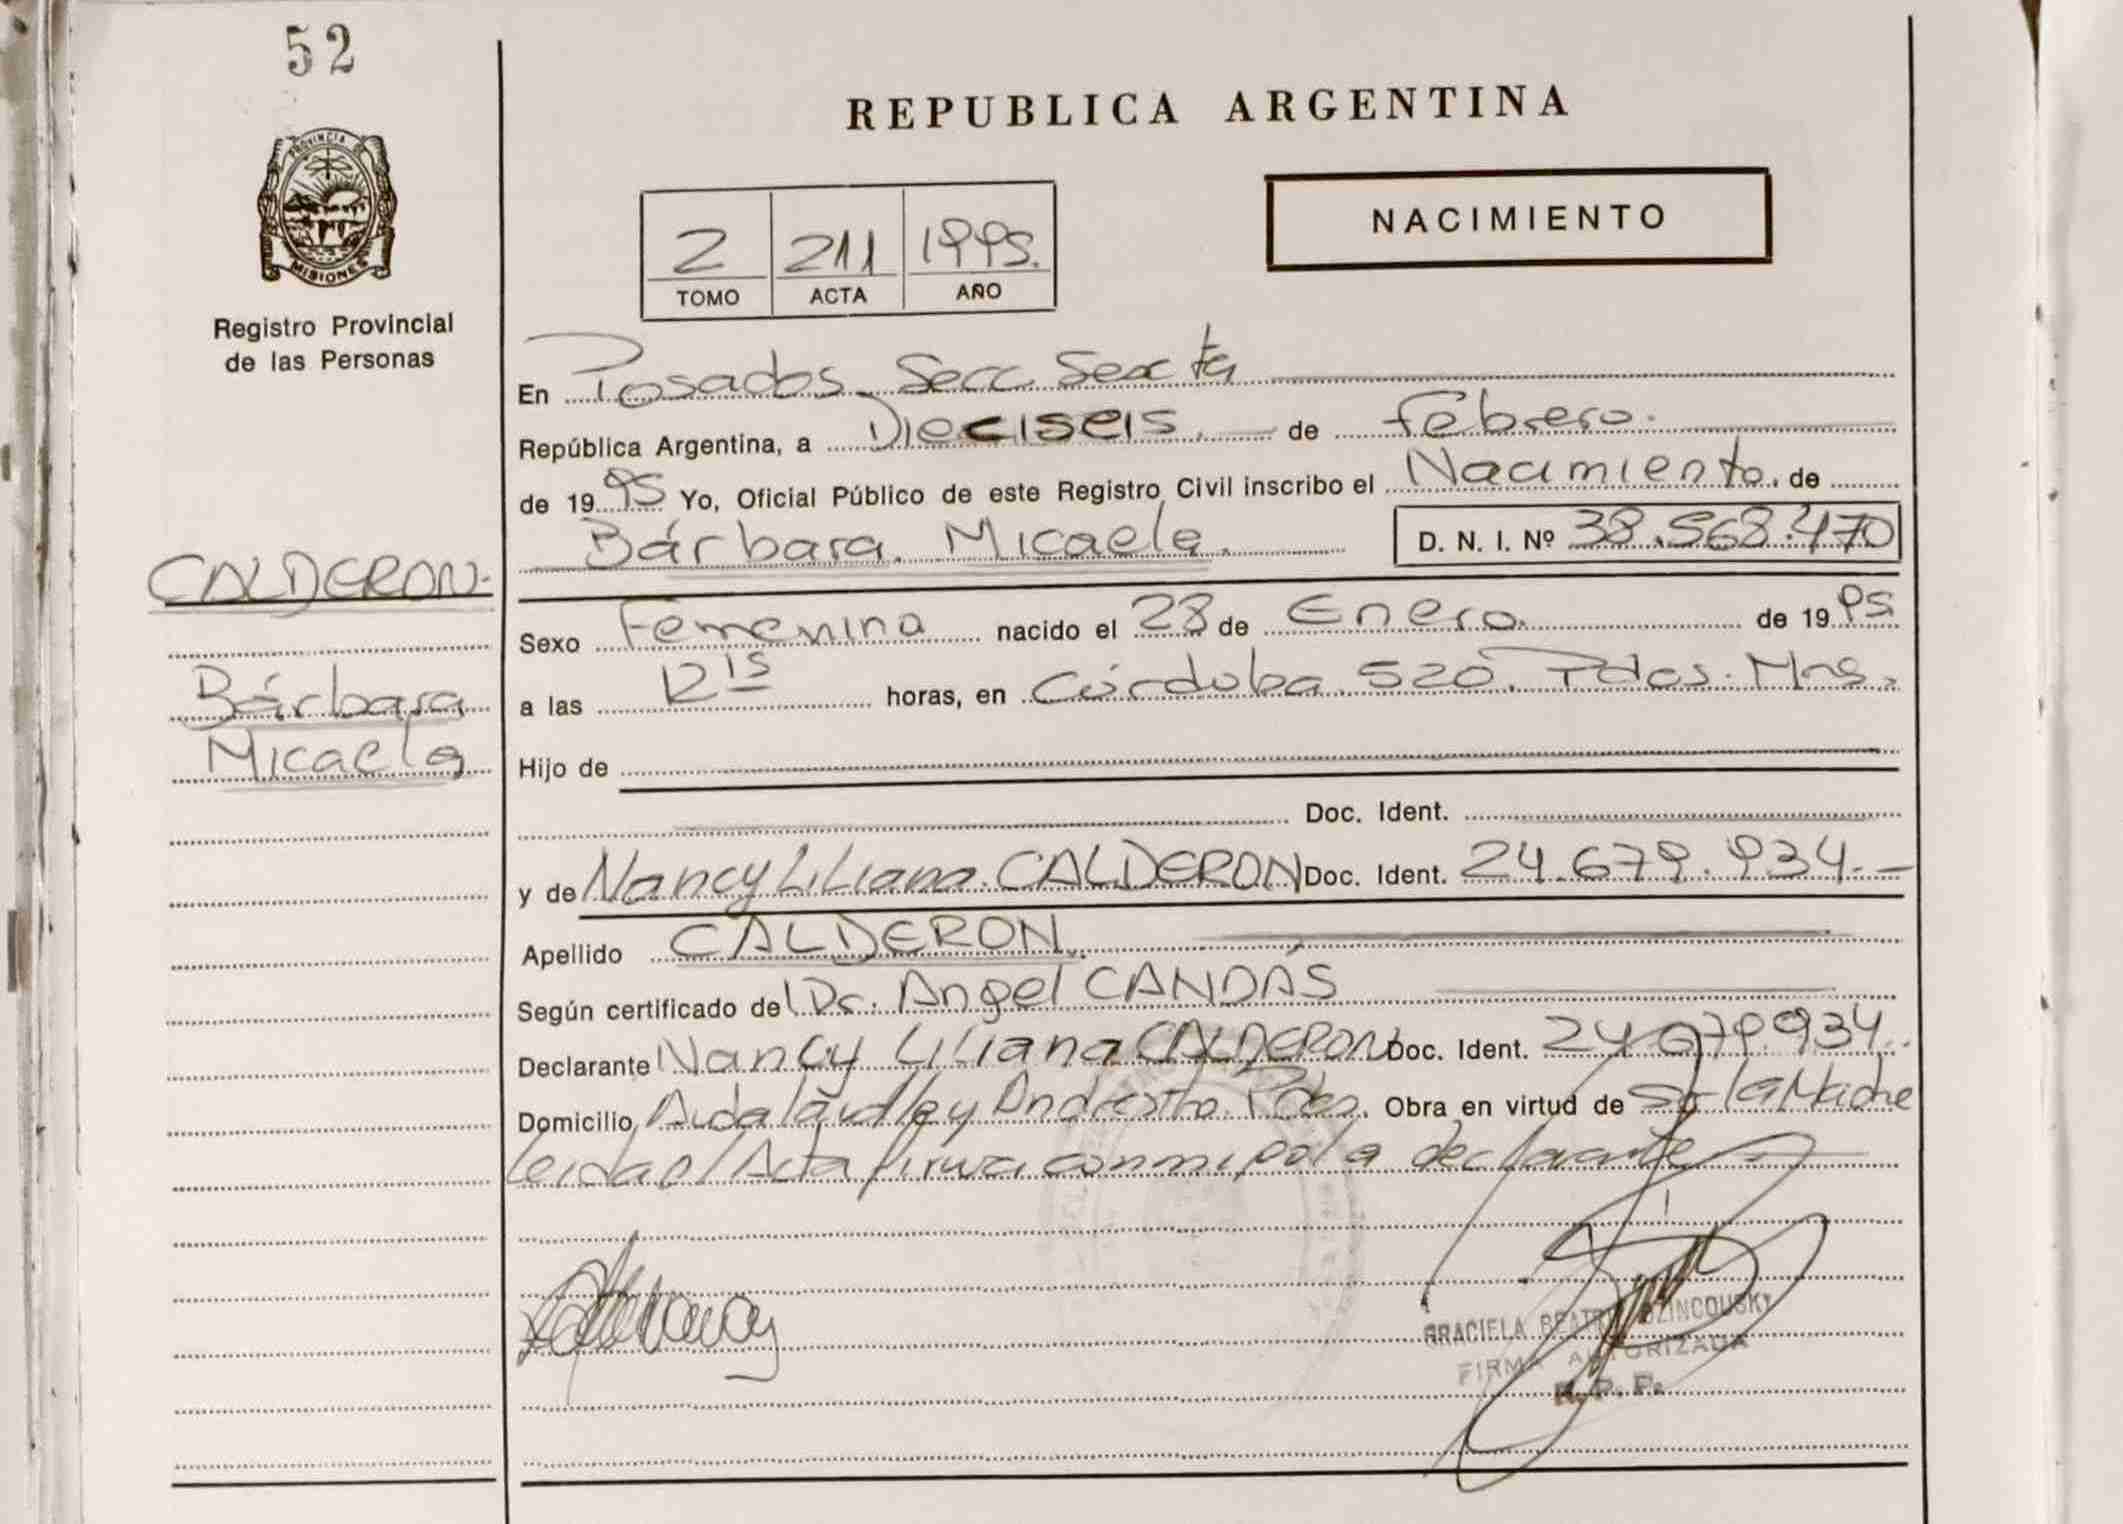 52
PROVINCIA DE
MISIONES
Registro Provincial
de las Personas
CALDERON.
Bárbara
Micaela
REPUBLICA ARGENTINA
NACIMIENTO
2 211 1995.
TOMO ACTA AÑO
En Posadas Secc. Sexta
República Argentina, a Dieciseis. de Febrero.
de 1995 Yo, Oficial Público de este Registro Civil inscribo el Nacimiento. de
Bárbara. Micaela. D. N. I. Nº 38.568.470
Sexo Femenina nacido el 28 de Enero. de 1995
a las 12 15 horas, en Córdoba 520. Pdas. Mns.
Hijo de
Doc. Ident.
y de Nancy Liliana. CALDERON Doc. Ident. 24.679.934.-
Apellido CALDERON.
Según certificado de Dr. Angel CANDÁS
Declarante Nancy Liliana CALDERON Doc. Ident. 24 679.934.
Domicilio y Andresito. Pdas. Obra en virtud de Ser la Madre
leida el Acta firma conmigo la declarante
GRACIELA
FIRMA AUTORIZADA
R. P. P.